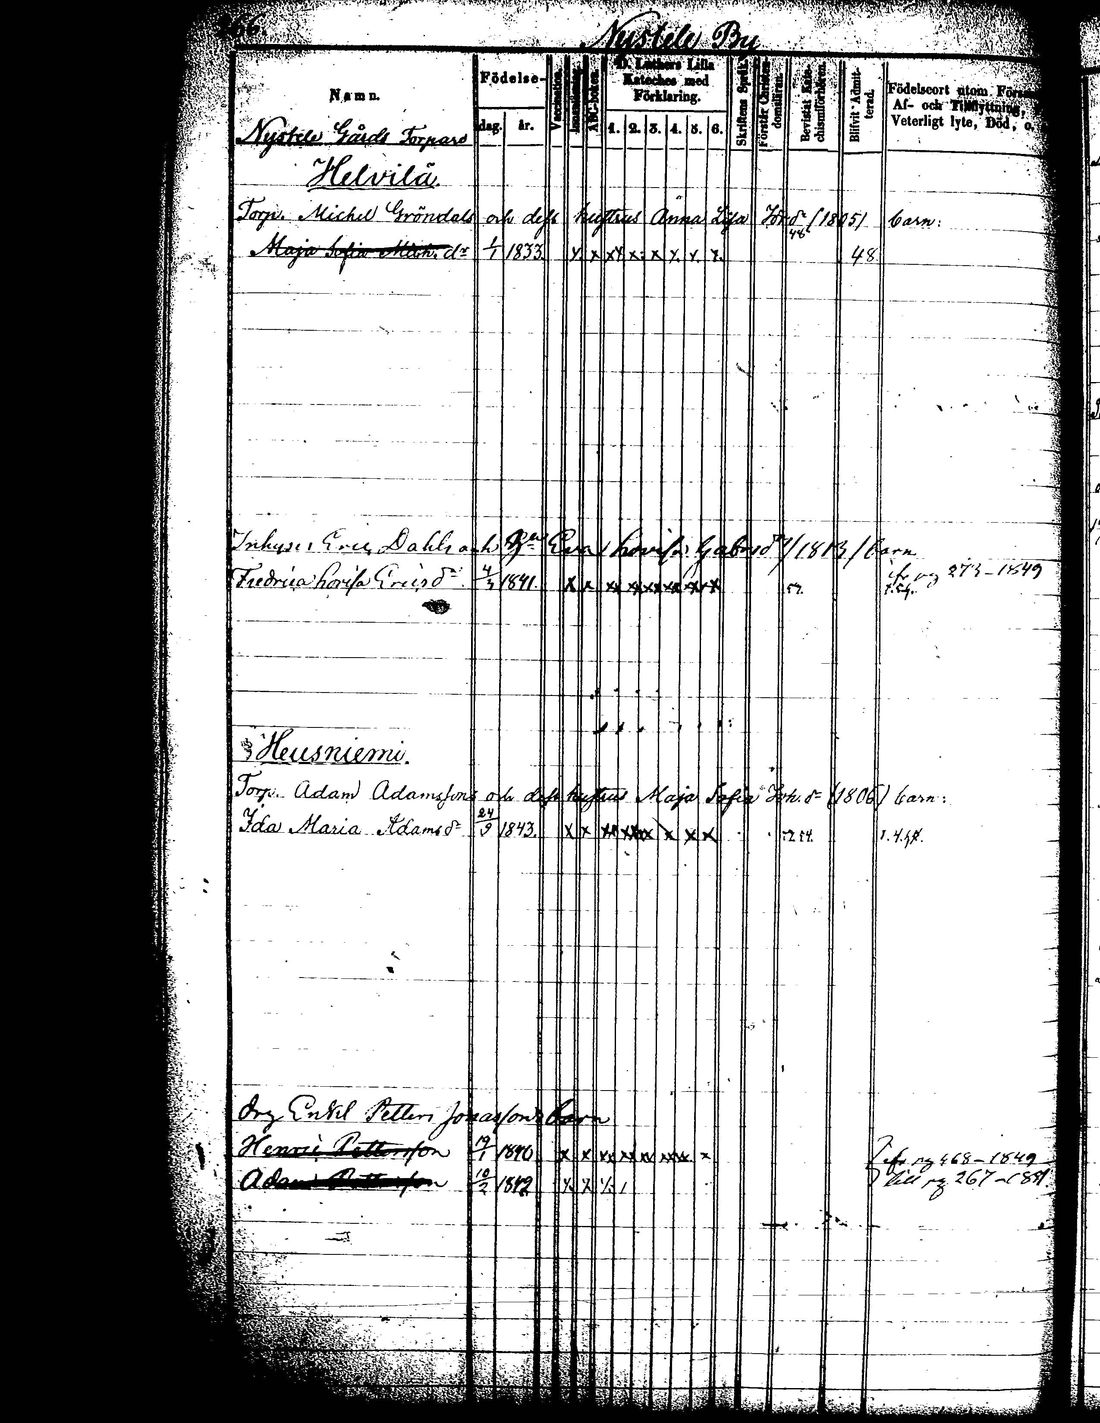 266.
Nystele By
Namn.
Födelse-
dag. år.
Vaccination.
Innanläsning.
ABC-boken.
D. Luthers Lilla Kateches med Förklaring.
1. 2. 3. 4. 5. 6.
Skriftens Språk.
Förstår Christendomsläran.
Bevistat Katechismiförhören.
Blifvit Admitterad.
Födelseort utom Försam
Af- och Tillflyttning,
Veterligt lyte, Död, o.
Nystele Gårds Torpare
Helvilä.
Torp. Michel Gröndals och dess hustrus Anna Lisa Joh.dr (1805) barn:
Maja Sofia Mich.dr 1/1 1833. x x xx x x x x x 48 48
Inhyses Eric Dahls och Eva Lovisa Gabrs dr /1813/ barn
Fredrica Lovisa Ericsdr 4/3 1841. x x xx xx xx xx xx x 57.
fr pag 273-1849
Heusniemi.
Torp. Adam Adamssons och dess hustrus Maja Sofia Joh.dr (1806) barn:
Ida Maria Adamsdr 24/9 1843. x x xx xx x x x 52 54.
Drg Enkl Petter Jonassons barn
Henric Pettersson 19/1 1840 x x xx xx xx xx x fr pg 468-1849
Adam Pettersson 10/2 1842 x x till pg 267-1851